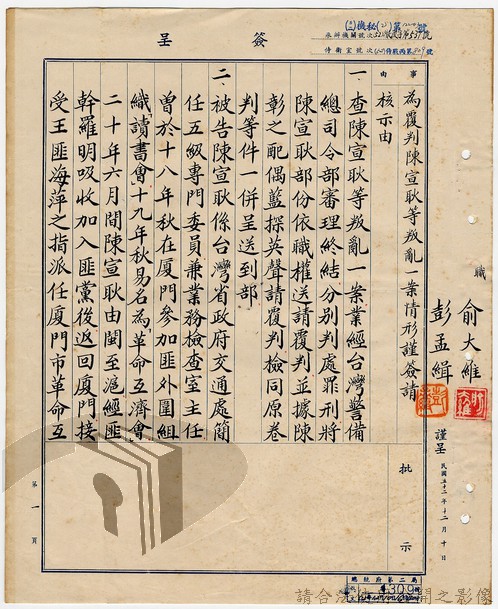 簽呈
事由
為覆判陳宣耿等叛亂一案業情形謹簽請
核示由
職
俞大維
彭孟緝
謹呈
民國五十二年十二月十日
一、查陳宣耿等叛亂一案業經台灣警備
總司令部審理終結分別判處罪刑將
陳宣耿部份依職權送請覆判並據陳
彰之配偶藍探英聲請覆判檢同原卷
判等件一併呈送到部
二、被告陳宣耿係台灣省政府交通處簡
任五級專門委員兼業務檢查室主任
曾於十八年秋在廈門參加匪外圍組
織讀書會十九年秋易名為革命互濟會
二十年六月間陳宣耿由閩至滬經匪
幹羅明吸收加入匪黨後返回廈門接
受王匪海萍之指派任廈門市革命互
批示
第一頁
總統府第二局
請合法使用公開之影像